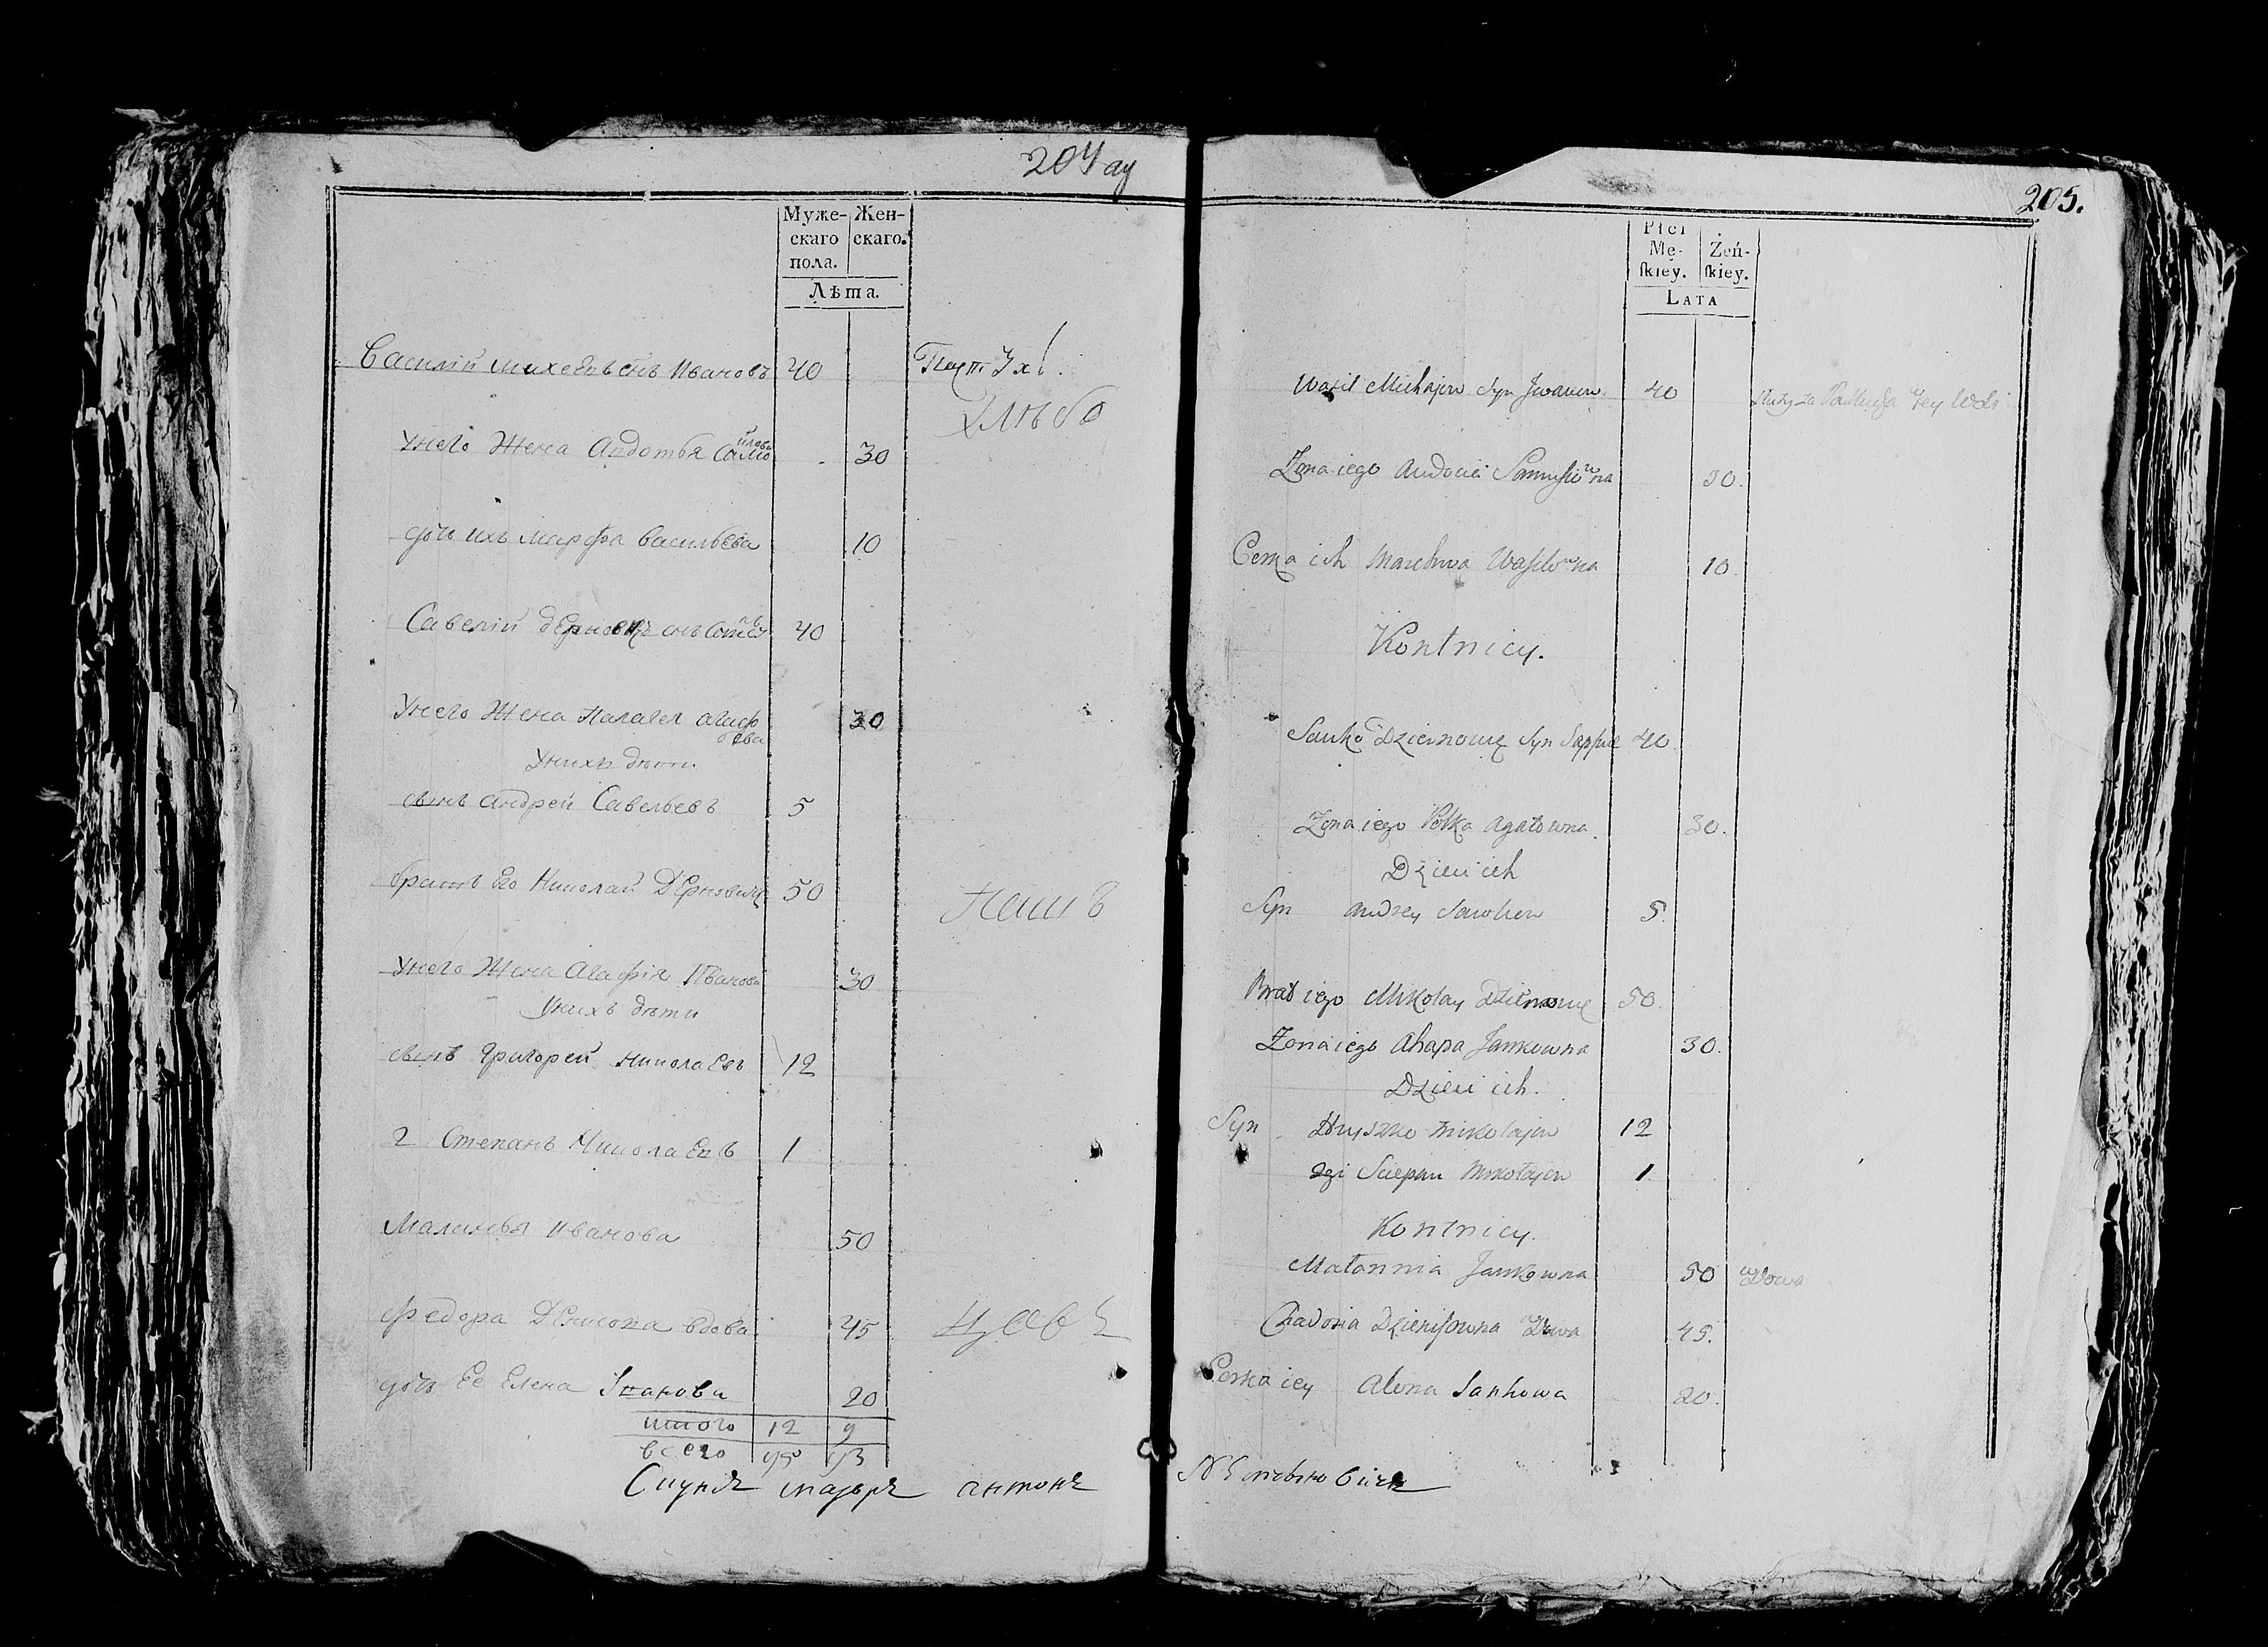 204 ау
Муже-
скаго
пола.
Жен-
скаго.
Лѣта.
Василій Михеевъ снъ Ивановъ 40 Пастухъ
унего Жена Авдотья Само йлова 30
дочь ихъ Марфа васильева 10
Савелій 40
Унего Жена Палагея агаф ова 30
Унихъ дѣти.
сынъ андрей Савельевъ 5
братъ Его Николай Дерновичъ 50
Унего Жена Агафія Иванова 30
Унихъ дѣти
сынъ Григорей николаевъ 12
2 Степанъ Николаевъ 1
Маланья иванова 50
Федора Денисова вдова 45
дочь Ее Елена 20
итого 12 9
всего
маэоръ антонъ
205.
Płci
Mę-
ſkiey.
Żeń-
ſkiey.
Lata
Wasil Michajow Syn Jwanow 40
Zona iego Audocia 30.
Corka ich Marchwa Wasilowna 10
Kontnicy.
Sawko Dziernowicz Syn 40
Zona iego Polka Agatowna 30.
Dzieci ich
Syn Andrey Sawkow 5.
Brat iego Mikołay Dziernowicz 50.
Zona iego Ahapa Jankowna 30.
Dzieci ich.
Syn Hryszko Mikołajow 12
2gi Sciepan Mikołajow 1
Kontnicy.
Małannia Jankowna 50 wdowa
Chadosia Dzienisowna wdowa 45.
Corka iey Alona Jankowa 20.